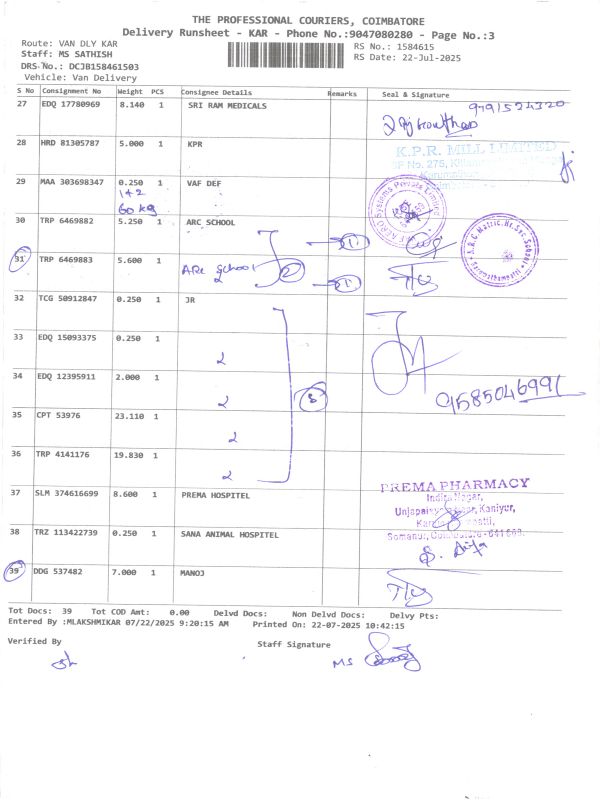 THE PROFESSIONAL COURIERS, COIMBATORE
Delivery Runsheet - KAR - Phone No.:9047080280 - Page No.:3
Route: VAN DLY KAR RS No.: 1584615
Staff: MS SATHISH RS Date: 22-Jul-2025
DRS No.: DCJB158461503
Vehicle: Van Delivery
S No Consignment No Weight PCS Consignee Details Remarks Seal & Signature
27 EDQ 17780969 8.140 1 SRI RAM MEDICALS 9791524320
28 HRD 81305787 5.000 1 KPR K.P.R. MILL LIMITED
29 MAA 303698347 0.250 1 VAF DEF
1+2
60 kg
30 TRP 6469882 5.250 1 ARC SCHOOL 1
31 TRP 6469883 5.600 1 ARC School 2 1
32 TCG 50912847 0.250 1 JR
33 EDQ 15093375 0.250 1
34 EDQ 12395911 2.000 1 5 9585046991
35 CPT 53976 23.110 1
36 TRP 4141176 19.830 1
37 SLM 374616699 8.600 1 PREMA HOSPITEL PREMA PHARMACY
Indira Nagar,
Kaniyur,
Somanur, Coimbatore - 641 668.
38 TRZ 113422739 0.250 1 SANA ANIMAL HOSPITEL
39 DDG 537482 7.000 1 MANOJ
Tot Docs: 39 Tot COD Amt: 0.00 Delvd Docs: Non Delvd Docs: Delvy Pts:
Entered By :MLAKSHMIKAR 07/22/2025 9:20:15 AM Printed On: 22-07-2025 10:42:15
Verified By Staff Signature
MS